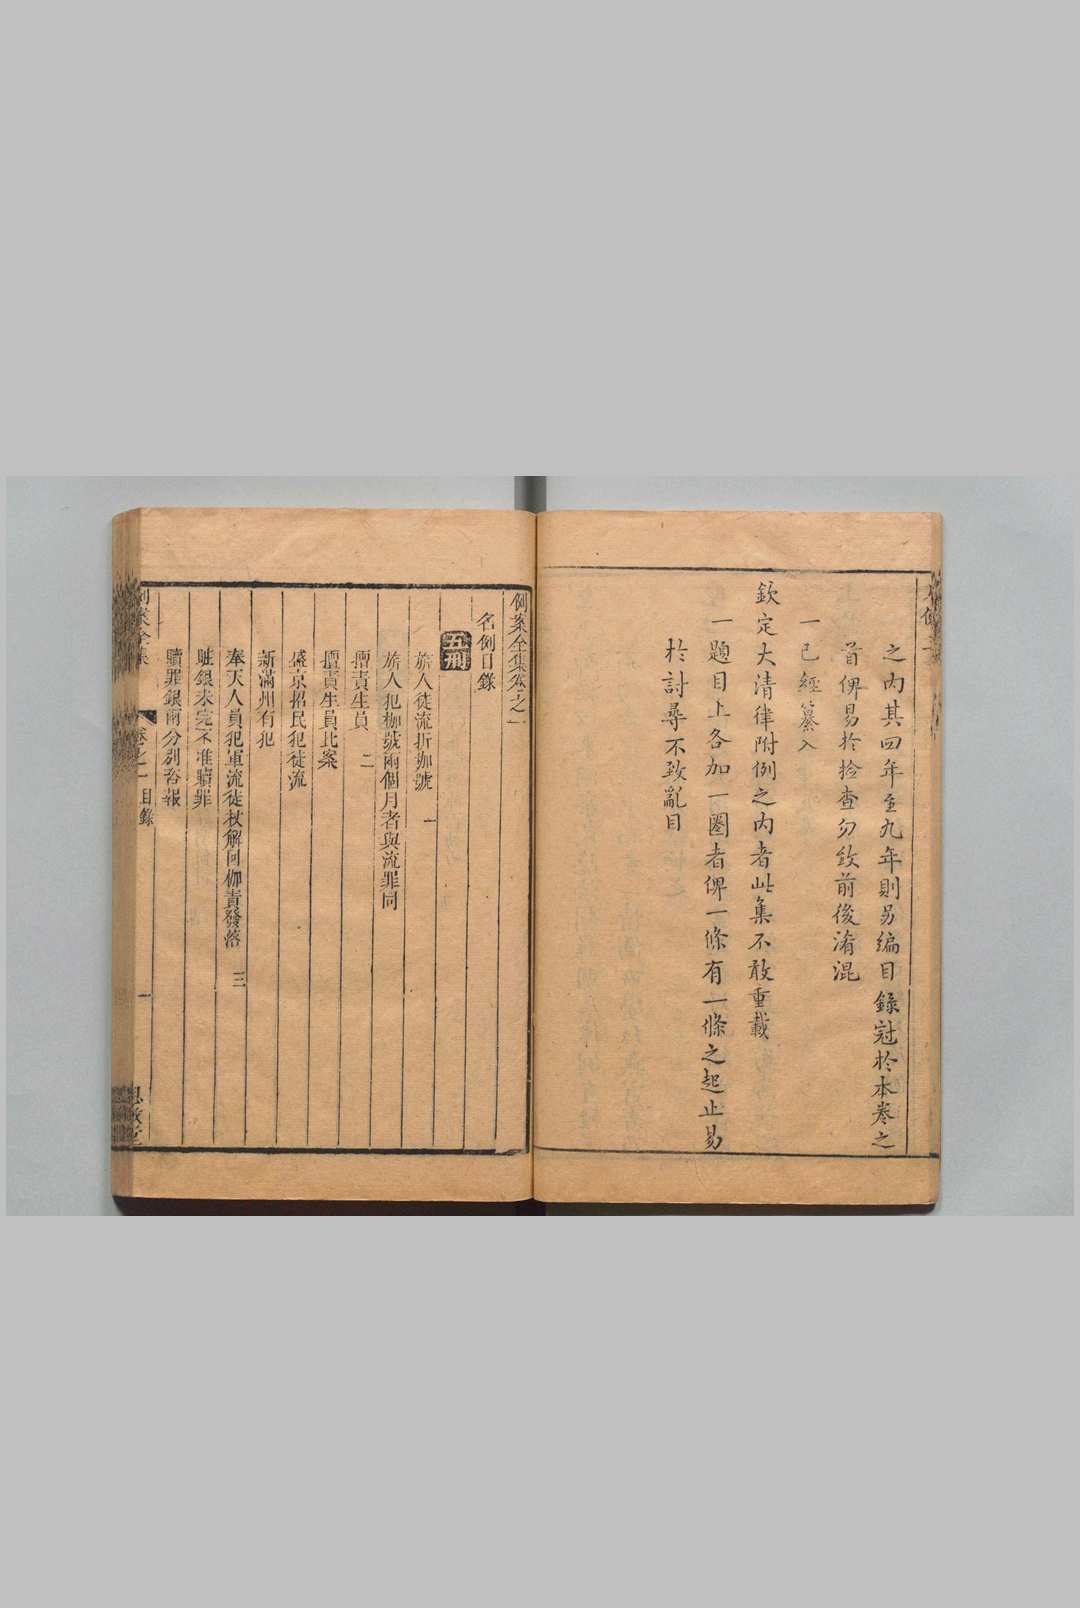 之內其四年至九年則另編目錄冠於本卷之
首俾易於捡查勿致前後淆混
一已經纂入
欽定大清律附例之內者此集不敢重載
一題目上各加一圈者俾一條有一條之起止易
於討尋不致亂目
例案全集卷之一
名例目錄
五刑
旂人徒流折枷號 一
旂人犯枷號兩個月者與流罪同
擅責生員 二
擅責生員比案
盛京招民犯徒流
新滿州有犯
奉天人員犯軍流徒杖解回枷責發落 三
賍銀未完不准贖罪
贖罪銀兩分別咨報
卷之一 目錄
一